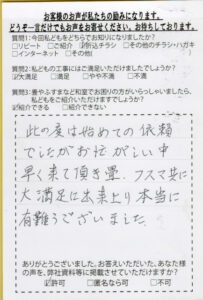 お客様のお声が私たちの励みになります。
どうぞ一言だけでもお声をお寄せください。お待ちしております。
質問1:今回私どもをどちらでお知りになりましたか?
□リピート □ご紹介 ☑折込チラシ □その他のチラシ・ハガキ
□インターネット □その他(
質問2:私どもの工事にはご満足いただけましたでしょうか?
☑大満足 □満足 □やや不満 □不満
質問3:畳やふすまなど和室でお困りの方がいらっしゃいましたら、
私どもをご紹介いただけますでしょうか?
☑紹介できる □紹介できない
此の度は始めての依頼
でしたがお忙がしい中
早く来て頂き畳、フスマ共に
大満足に出来上り本当に
有難うございました。
ありがとうございました。お答えいただいた、あなた様
の声を、弊社資料等に掲載させていただけますか?
☑許可 □匿名なら可 □不可